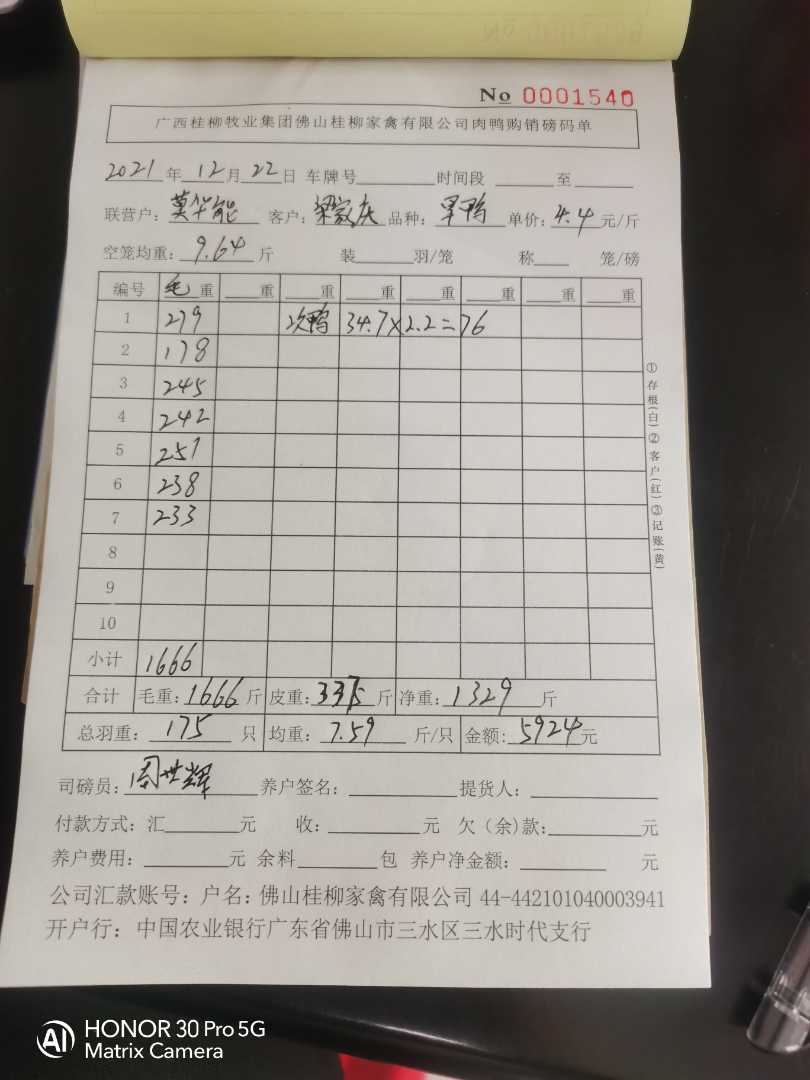 No 0001540
广西桂柳牧业集团佛山桂柳家禽有限公司肉鸭购销磅码单
2021年12月22日 车牌号 时间段 至
联营户：莫华能 客户：梁家庆 品种：旱鸭 单价：4.4元/斤
空笼均重：9.64斤 装 羽/笼 称 笼/磅
编号 毛重 重 重 重 重 重 重 重
1 279 次鸭 34.7×2.2=76
2 178
3 245
4 242
5 251
6 238
7 233
8
9
10
小计 1666
合计 毛重：1666斤 皮重：337斤 净重：1329斤
总羽重：175只 均重：7.59斤/只 金额：5924元
司磅员：周世辉 养户签名： 提货人：
付款方式：汇 元 收： 元 欠（余）款： 元
养户费用： 元 余料 包 养户净金额： 元
公司汇款账号：户名：佛山桂柳家禽有限公司 44-442101040003941
开户行：中国农业银行广东省佛山市三水区三水时代支行
①存根(白)②客户(红)③记账(黄)
HONOR 30 Pro 5G
Matrix Camera